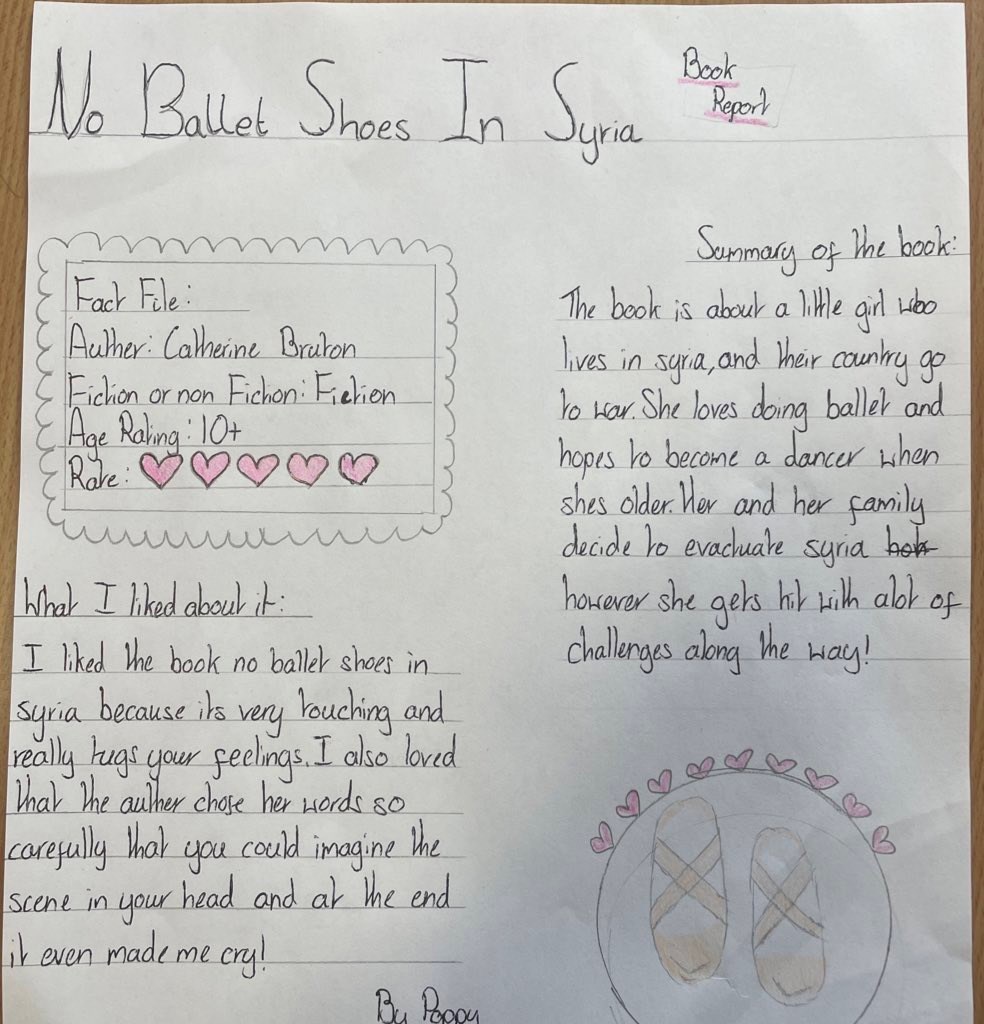 No Ballet Shoes In Syria
Book
Report
Fact File:
Auther: Catherine Bruton
Fiction or non Fiction: Fiction
Age Rating: 10+
Rate:
What I liked about it:
I liked the book no ballet shoes in
syria because its very touching and
really tugs your feelings. I also loved
that the auther chose her words so
carefully that you could imagine the
scene in your head and at the end
it even made me cry!
By Poppy
Summary of the book:
The book is about a little girl who
lives in syria, and their country go
to war. She loves doing ballet and
hopes to become a dancer when
shes older. Her and her family
decide to evactuate syria
however she gets hit with alot of
challenges along the way!